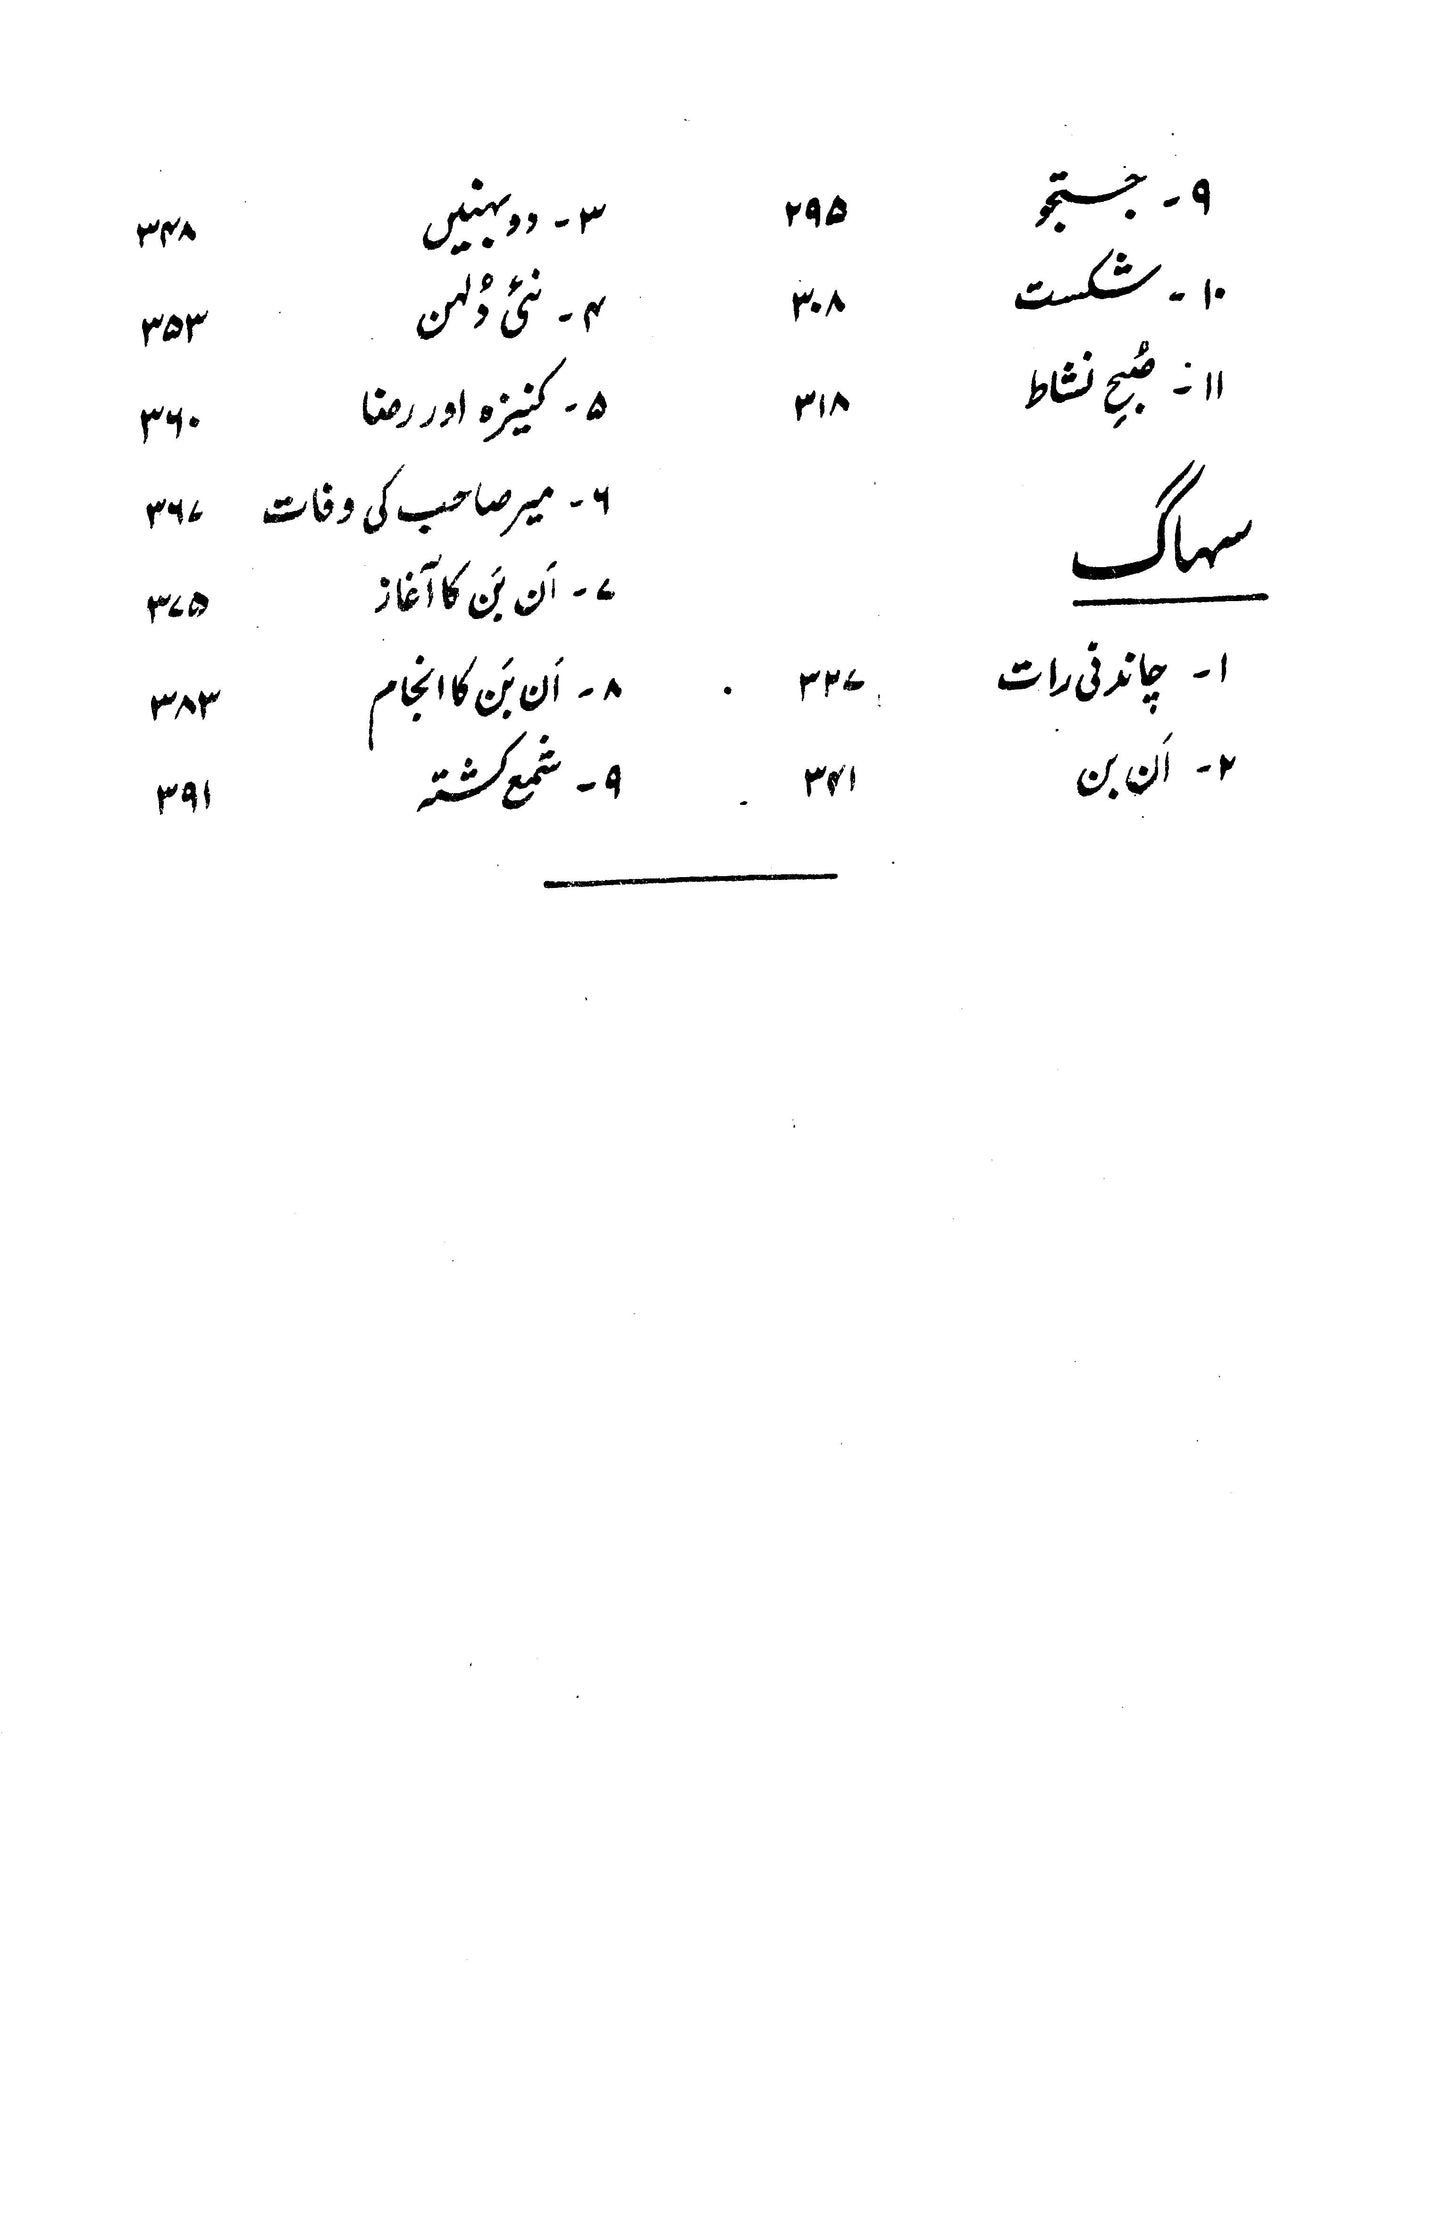 ۹۔ جستجو ۲۹۵
۱۰۔ شکست ۳۰۸
۱۱۔ صُبحِ نشاط ۳۱۸
سہاگ
۱۔ چاندنی رات ۳۲۷
۲۔ اَن بن ۳۴۱
۳۔ دو بہنیں ۳۴۸
۴۔ نئی دُلہن ۳۵۳
۵۔ کنیزہ اور رضا ۳۶۰
۶۔ میر صاحب کی وفات ۳۶۷
۷۔ اَن بَن کا آغاز ۳۷۵
۸۔ اَن بَن کا انجام ۳۸۳
۹۔ شمع کشتہ ۳۹۱